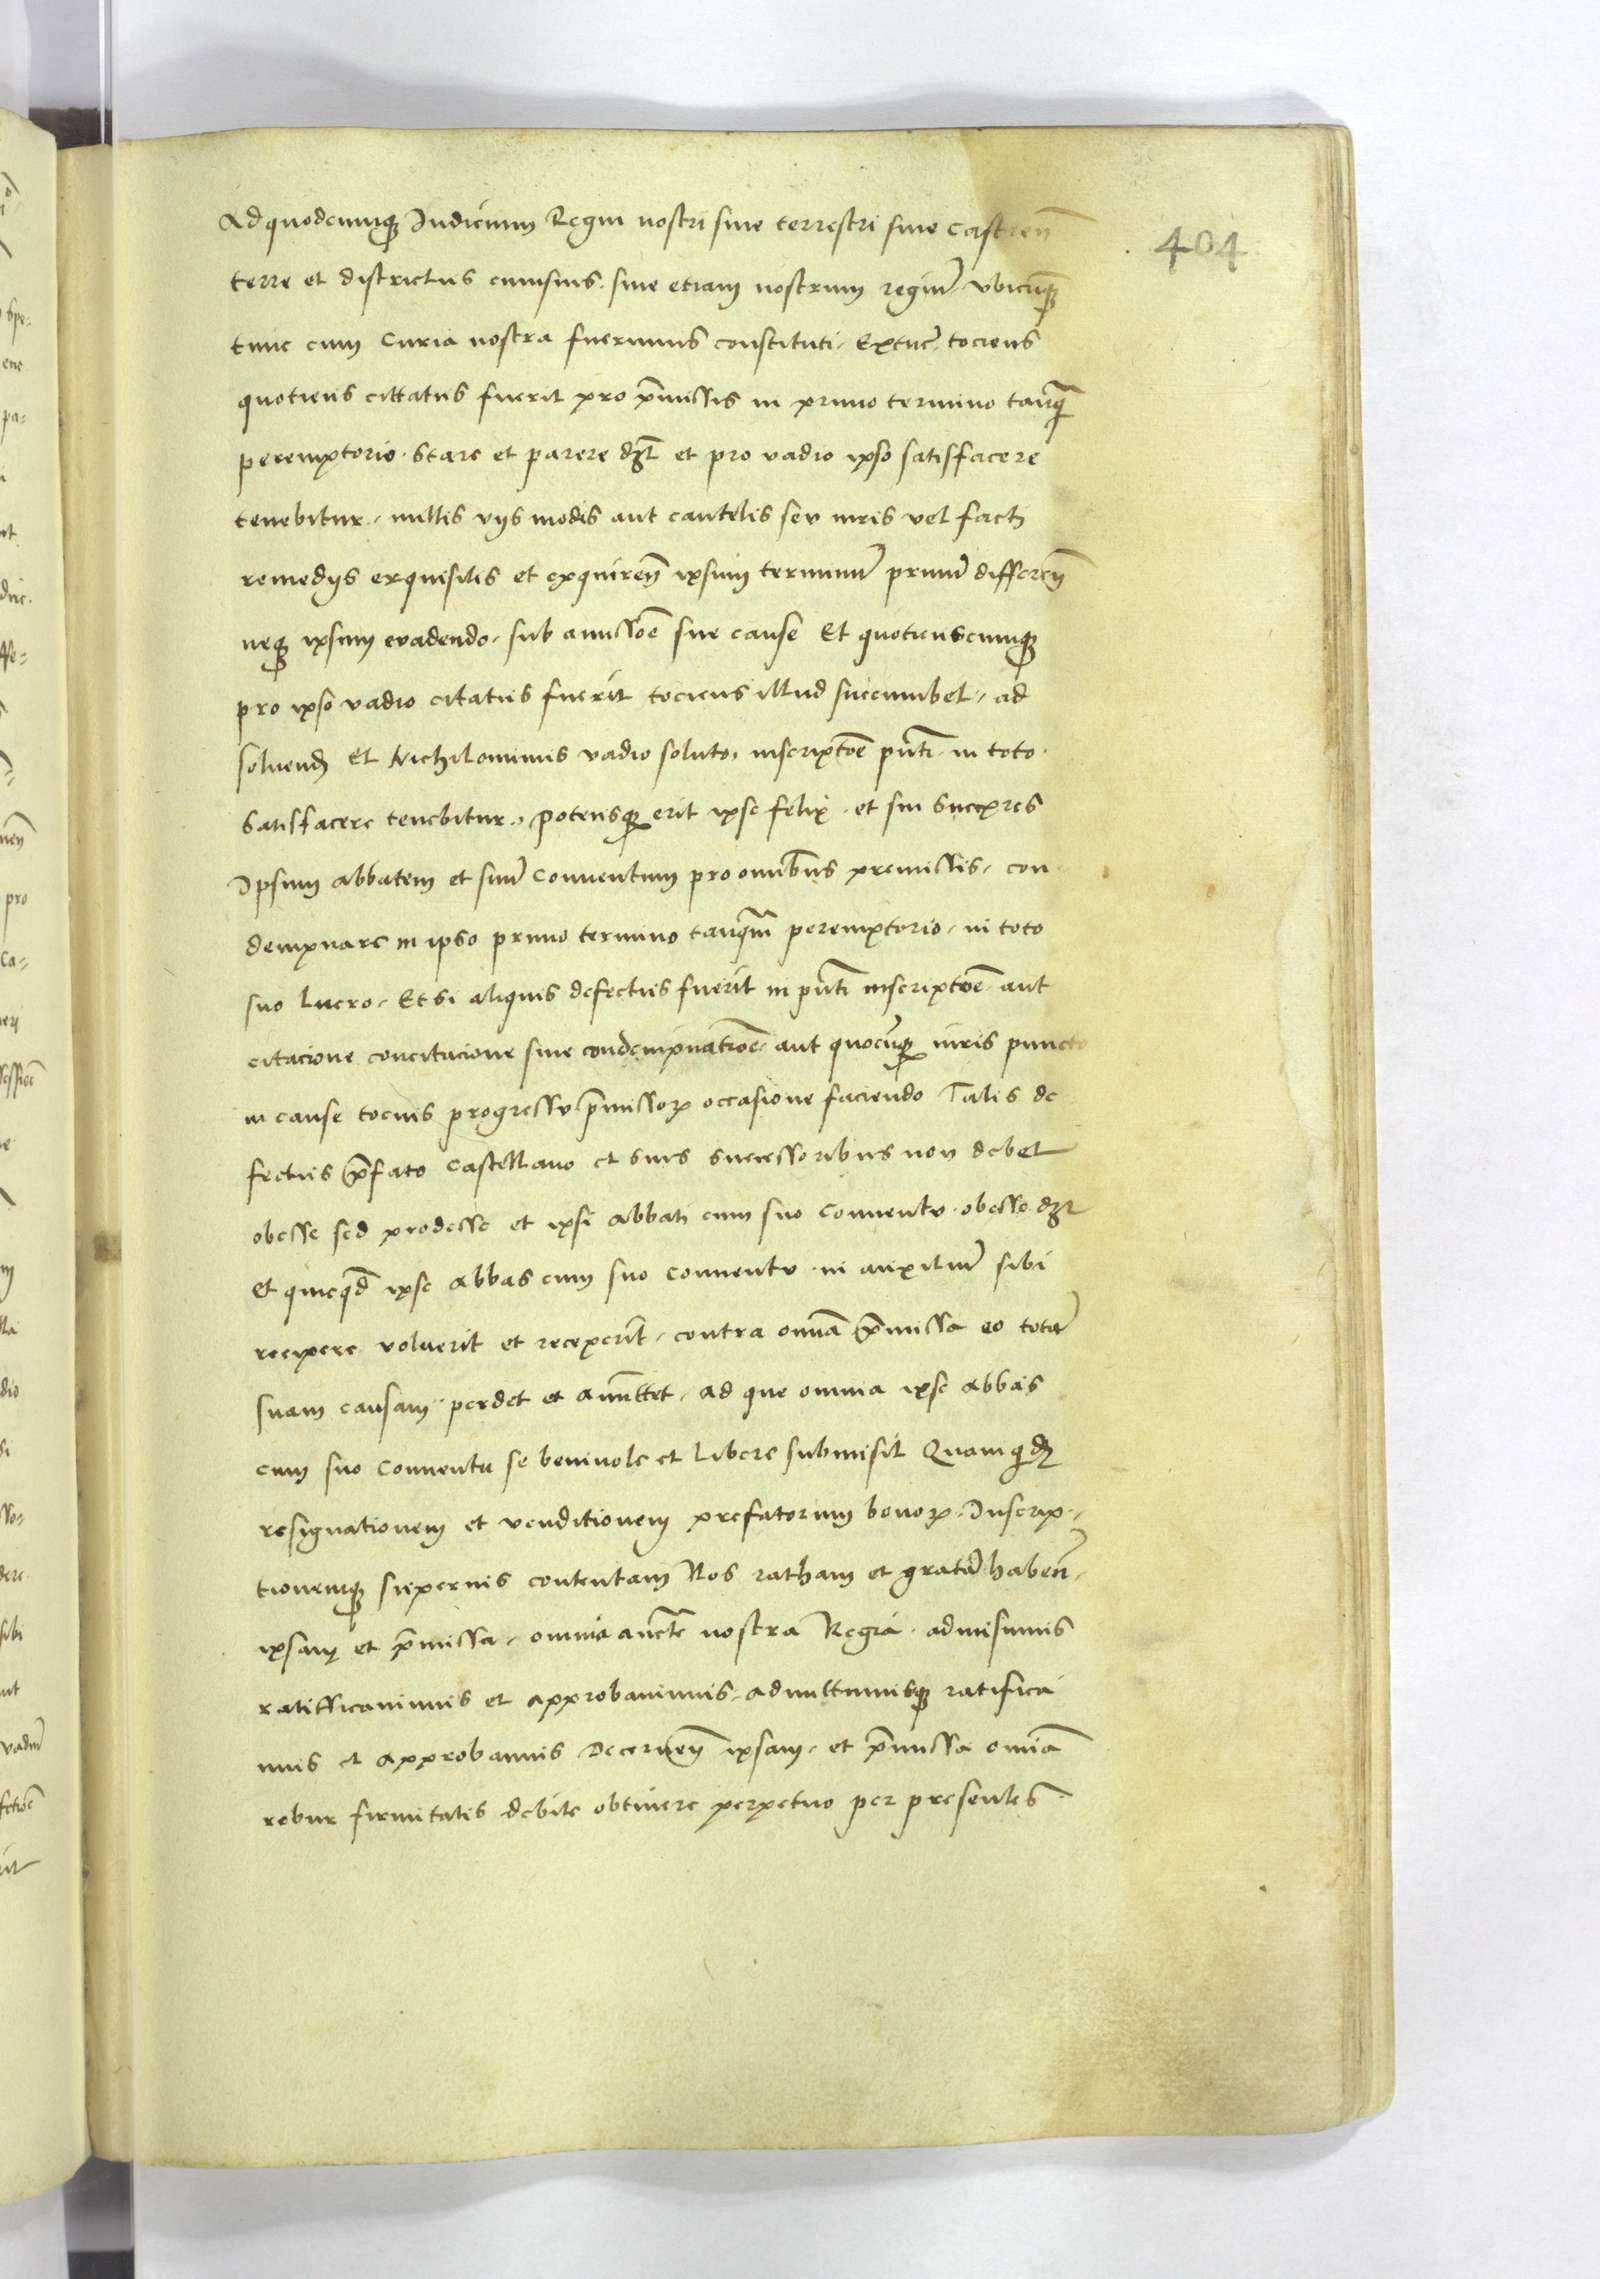 404
Ad quodcumq̄ Iudicium Regni nostri siue terrestri siue castren̄
terre et districtus cuiusuis siue etiam nostrum regiuȝ vbicūq̄
tunc cum Curia nostra fuerimus constituti, Extūc tociens
quotiens cittatus fuerit pro p̄missis in primo termino tanq̄
peremptorio stare et parere dȝt et pro vadio ipso satisfacere
tenebitur, nullis vijs modis aut cautelis seu iuris vel facti
remedijs exquisitis et exquiren̄ ipsum terminuȝ primuȝ differen̄
neq̄ ipsum evadendo, sub amissōe sue cause Et quotienscumq̄
pro ipso vadio citatus fuerit tociens illud succumbet, ad
soluend̄ et Nichilominus vadio soluto, inscriptōe pn̄ti in toto
satisfacere tenebitur, potensq̄ erit ipse felix et sui succ̄res
Ipsum Abbatem et suuȝ Conuentum pro omībus premissis, con
dempnare in ipso primo termino tanq̄m peremptorio, in toto
suo lucro, Et si aliquis defectus fuerit in pn̄ti inscriptōe aut
citacione concitacione siue condempnatiōe, aut quocūq̄ iuris puncto
in cause tocius progressu p̄missoꝝ occasione faciendo Talis de
fectus p̄fato Castellano et suis successoribus non debet
obesse sed prodesse et ipsi Abbati cum suo Conuentu obesse dȝt
Et quicq̄d ipse Abbas cum suo Conuentu in auxiliuȝ sibi
recipere voluerit et receperit, contra om̄ia p̄missa eo totaȝ
suam causam perdet et amittet, ad que omnia ipse Abbas
cum suo Conuentu se beniuole et libere submisit Quam q̄dȝ
resignationem et venditionem prefatorum bonoꝝ Inscrip,
tionemq̄ superius contentam Nos ratham et grataȝ haben̄,
ipsam et p̄missa, omnia auct̄te nostra Regia admisimus
ratifficauimus et approbauimus, admittimusq̄ ratifica
mus et approbamus Decernen̄ ipsam, et p̄missa om̄ia
robur firmitatis debite obtinere perpetuo per presentes